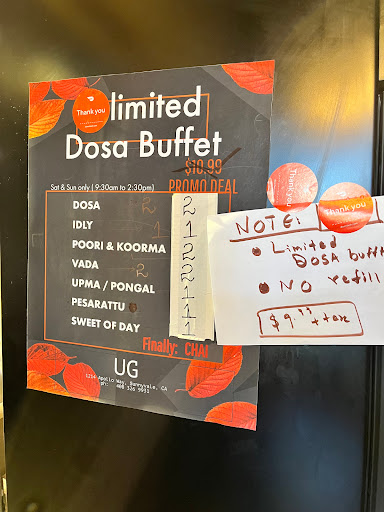 Thank you
limited
Dosa Buffet
$10.99
Sat & Sun only (9:30am to 2:30pm)
PROMO DEAL
DOSA 2 2
IDLY 1 1
POORI & KOORMA 2
VADA 2 2
UPMA / PONGAL 1
PESARATTU 1
SWEET OF DAY 1
Finally: CHAI
UG
Apollo Way, Sunnyvale, CA
Thank you
Thank you
NOTE:
• Limited
DOSA buff
• NO refill
$9.99 + tax